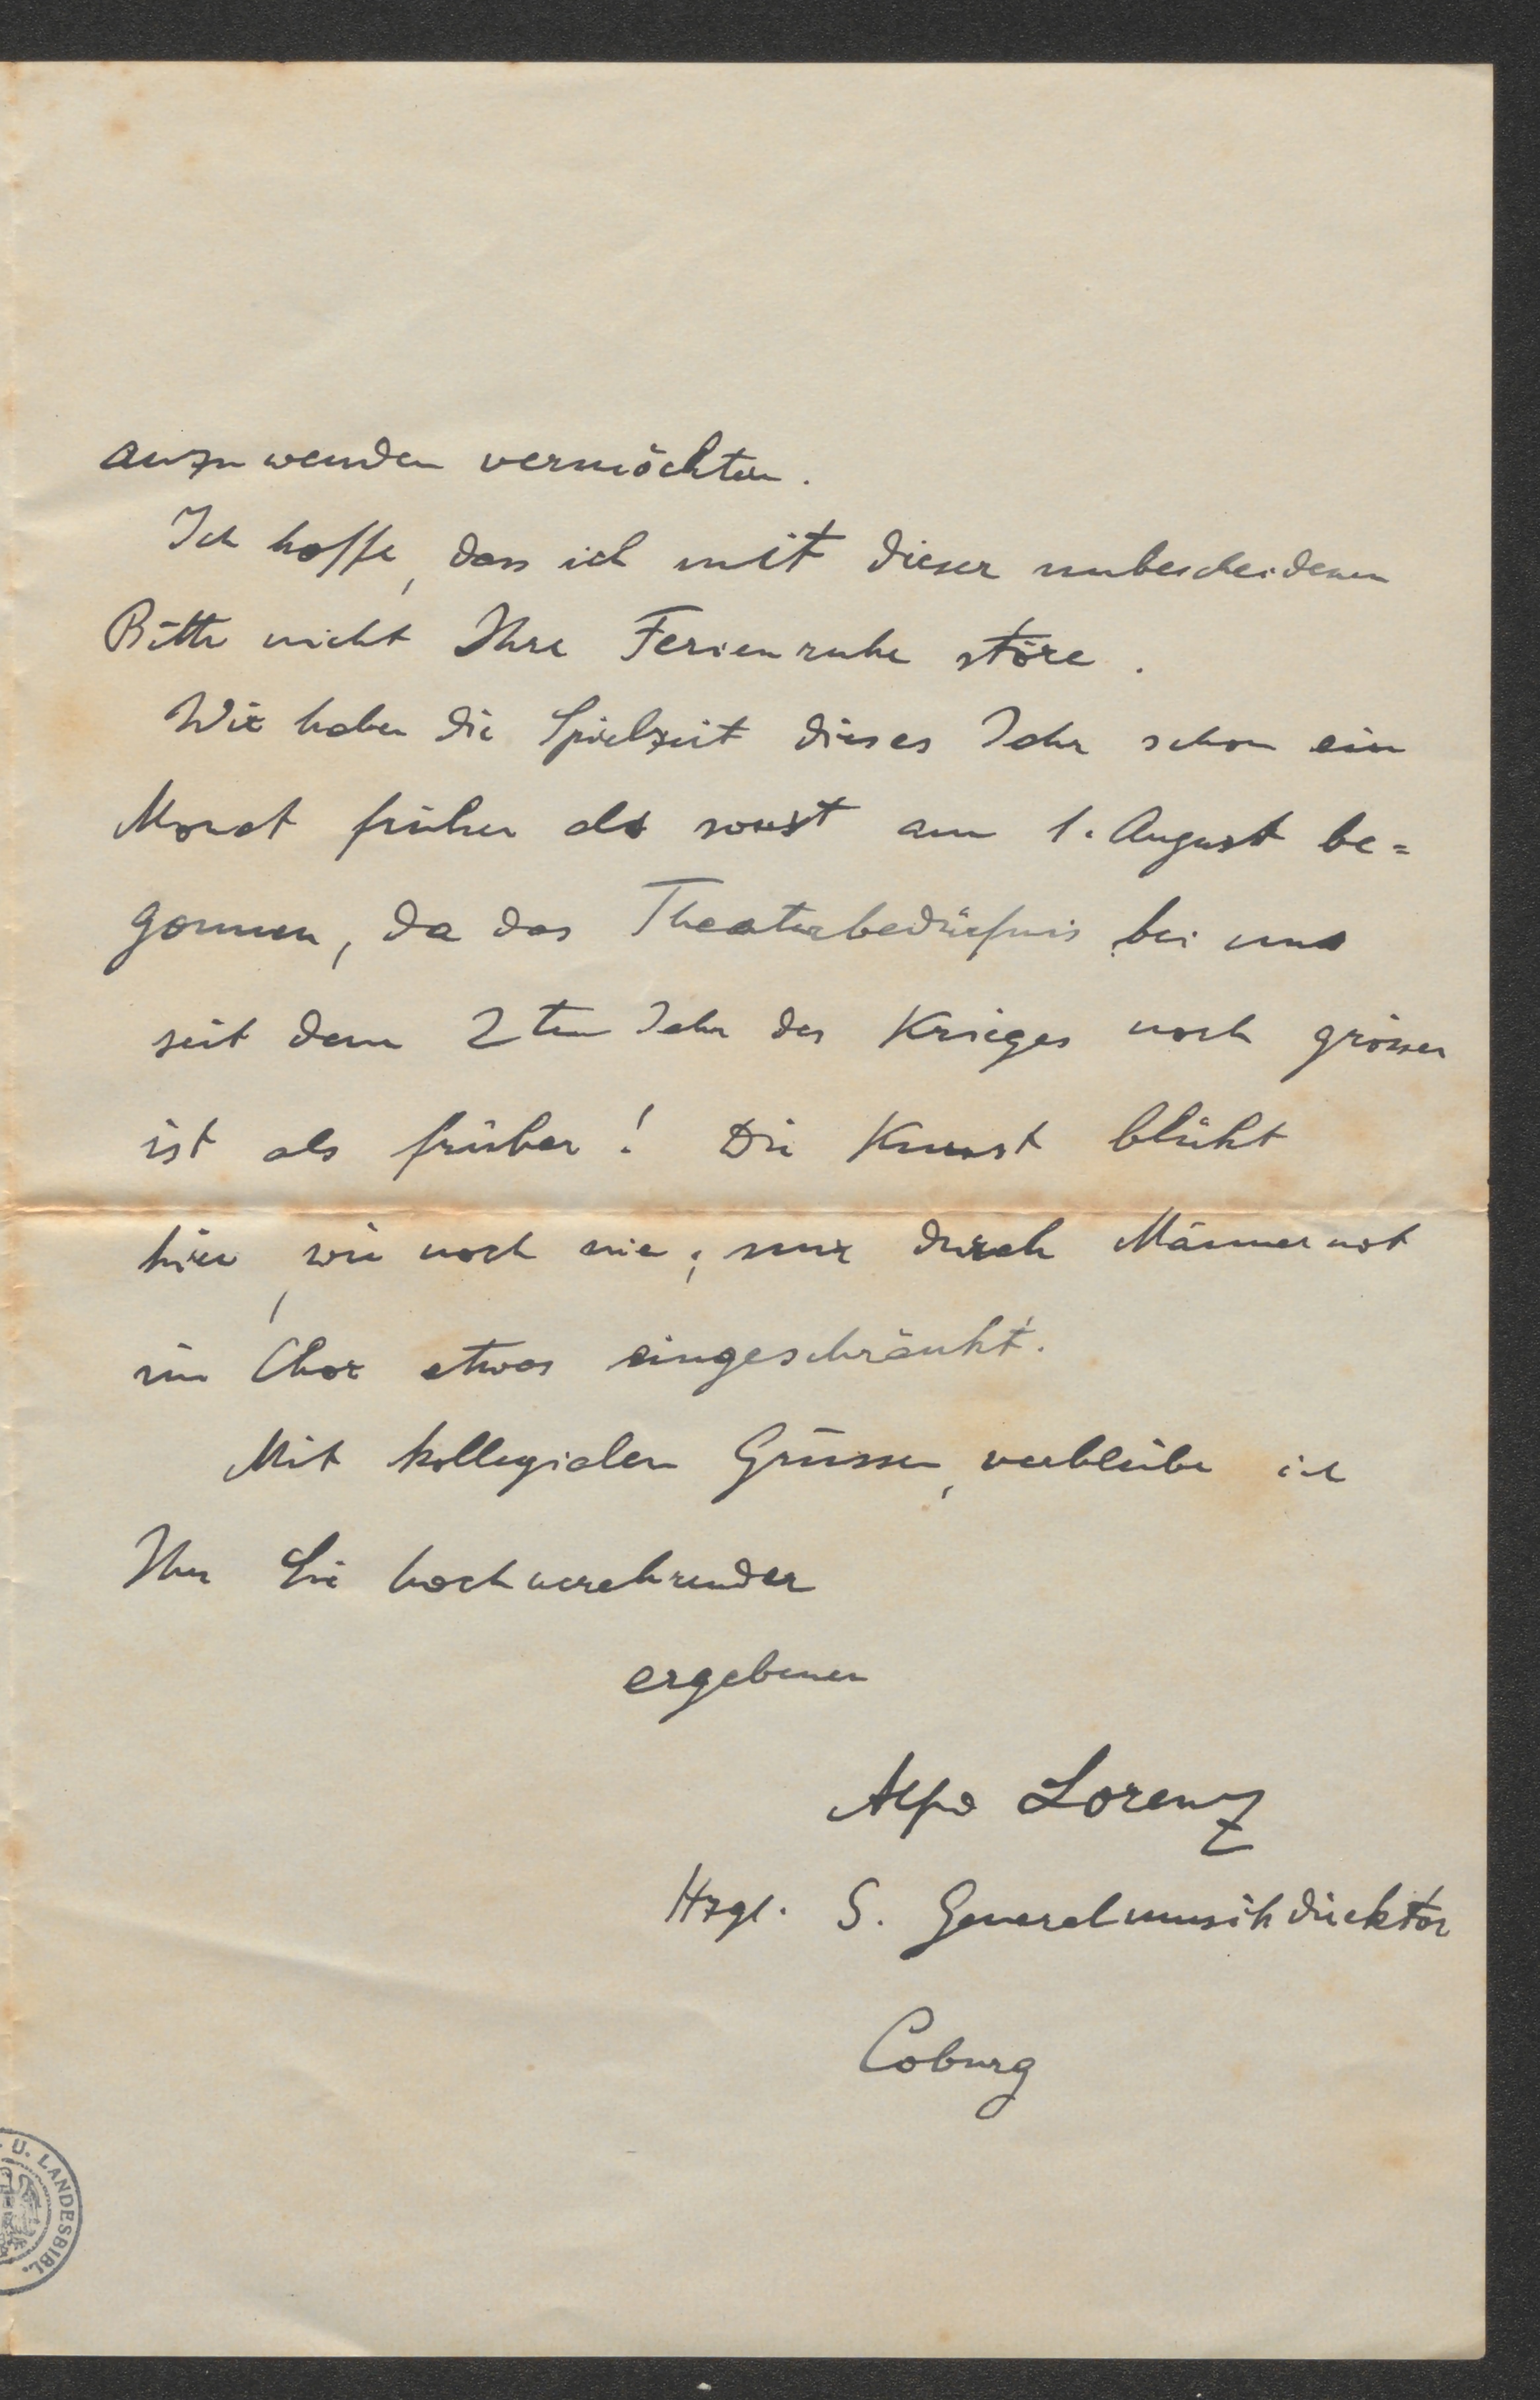 anzuwenden vermöchten.
Ich hoffe, dass ich mit dieser unbescheidenen
Bitte nicht Ihre Ferienruhe störe.
Wir haben die Spielzeit dieses Jahr schon ein
Monat früher als sonst am 1. August be=
gonnen, da das Theaterbedürfnis bei uns
seit dem 2ten Jahr des Krieges noch grösser
ist als früher! Die Kunst blüht
hier, wie noch nie; nur durch Männernot
im Chor etwas eingeschränkt.
Mit kollegialen Grüssen, verbleibe ich
Ihr Sie hochverehrender
ergebener
Alfr Lorenz
Hzgl. S. Generalmusikdirektor
Coburg
U. LANDESBIBL.